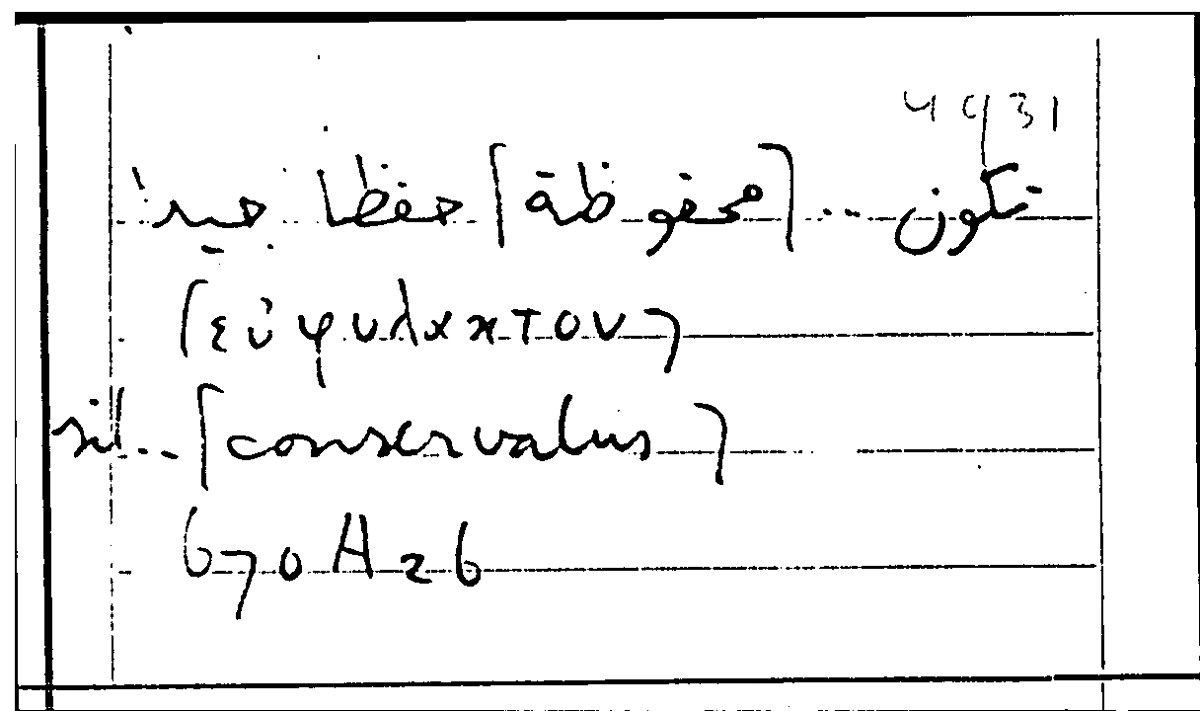 4931
تكون ... [محفوظة] حفظا جيدا
[εὐφυλακτον]
sit... [conservatus]
670 A 26